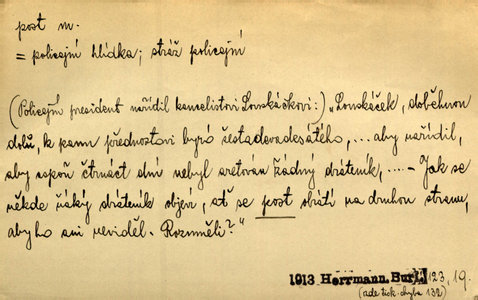 post m.
= policejní hlídka; stráž policejní
(Policejní president nařídil kancelistovi Louskáčkovi:) „Louskáček, doběhnou
dolů, k panu přednostovi byró šestadevadesátého, ... aby nařídil,
aby aspoň čtrnáct dní nebyl aretován žádný dráteník, .... – Jak se
někde ňáký dráteník objeví, ať se post obrátí na druhou stranu,
aby ho ani neviděl. Rozuměli?"
1013 Herrmann, Bur. 123, 19.
(ade tisk. chyba 132)